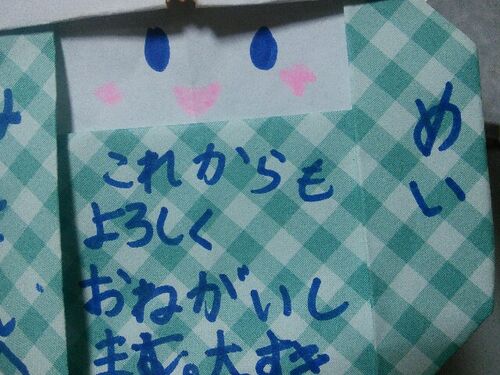 めい
これからも
よろしく
おねがいし
ます。大すき